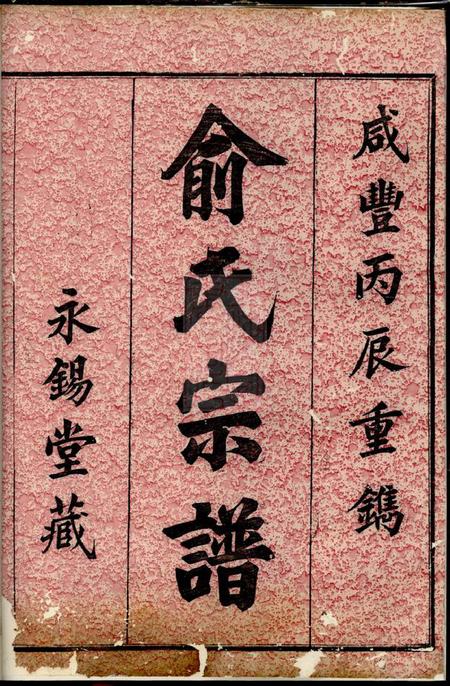 咸豐丙辰重鐫
俞氏宗譜
永錫堂藏